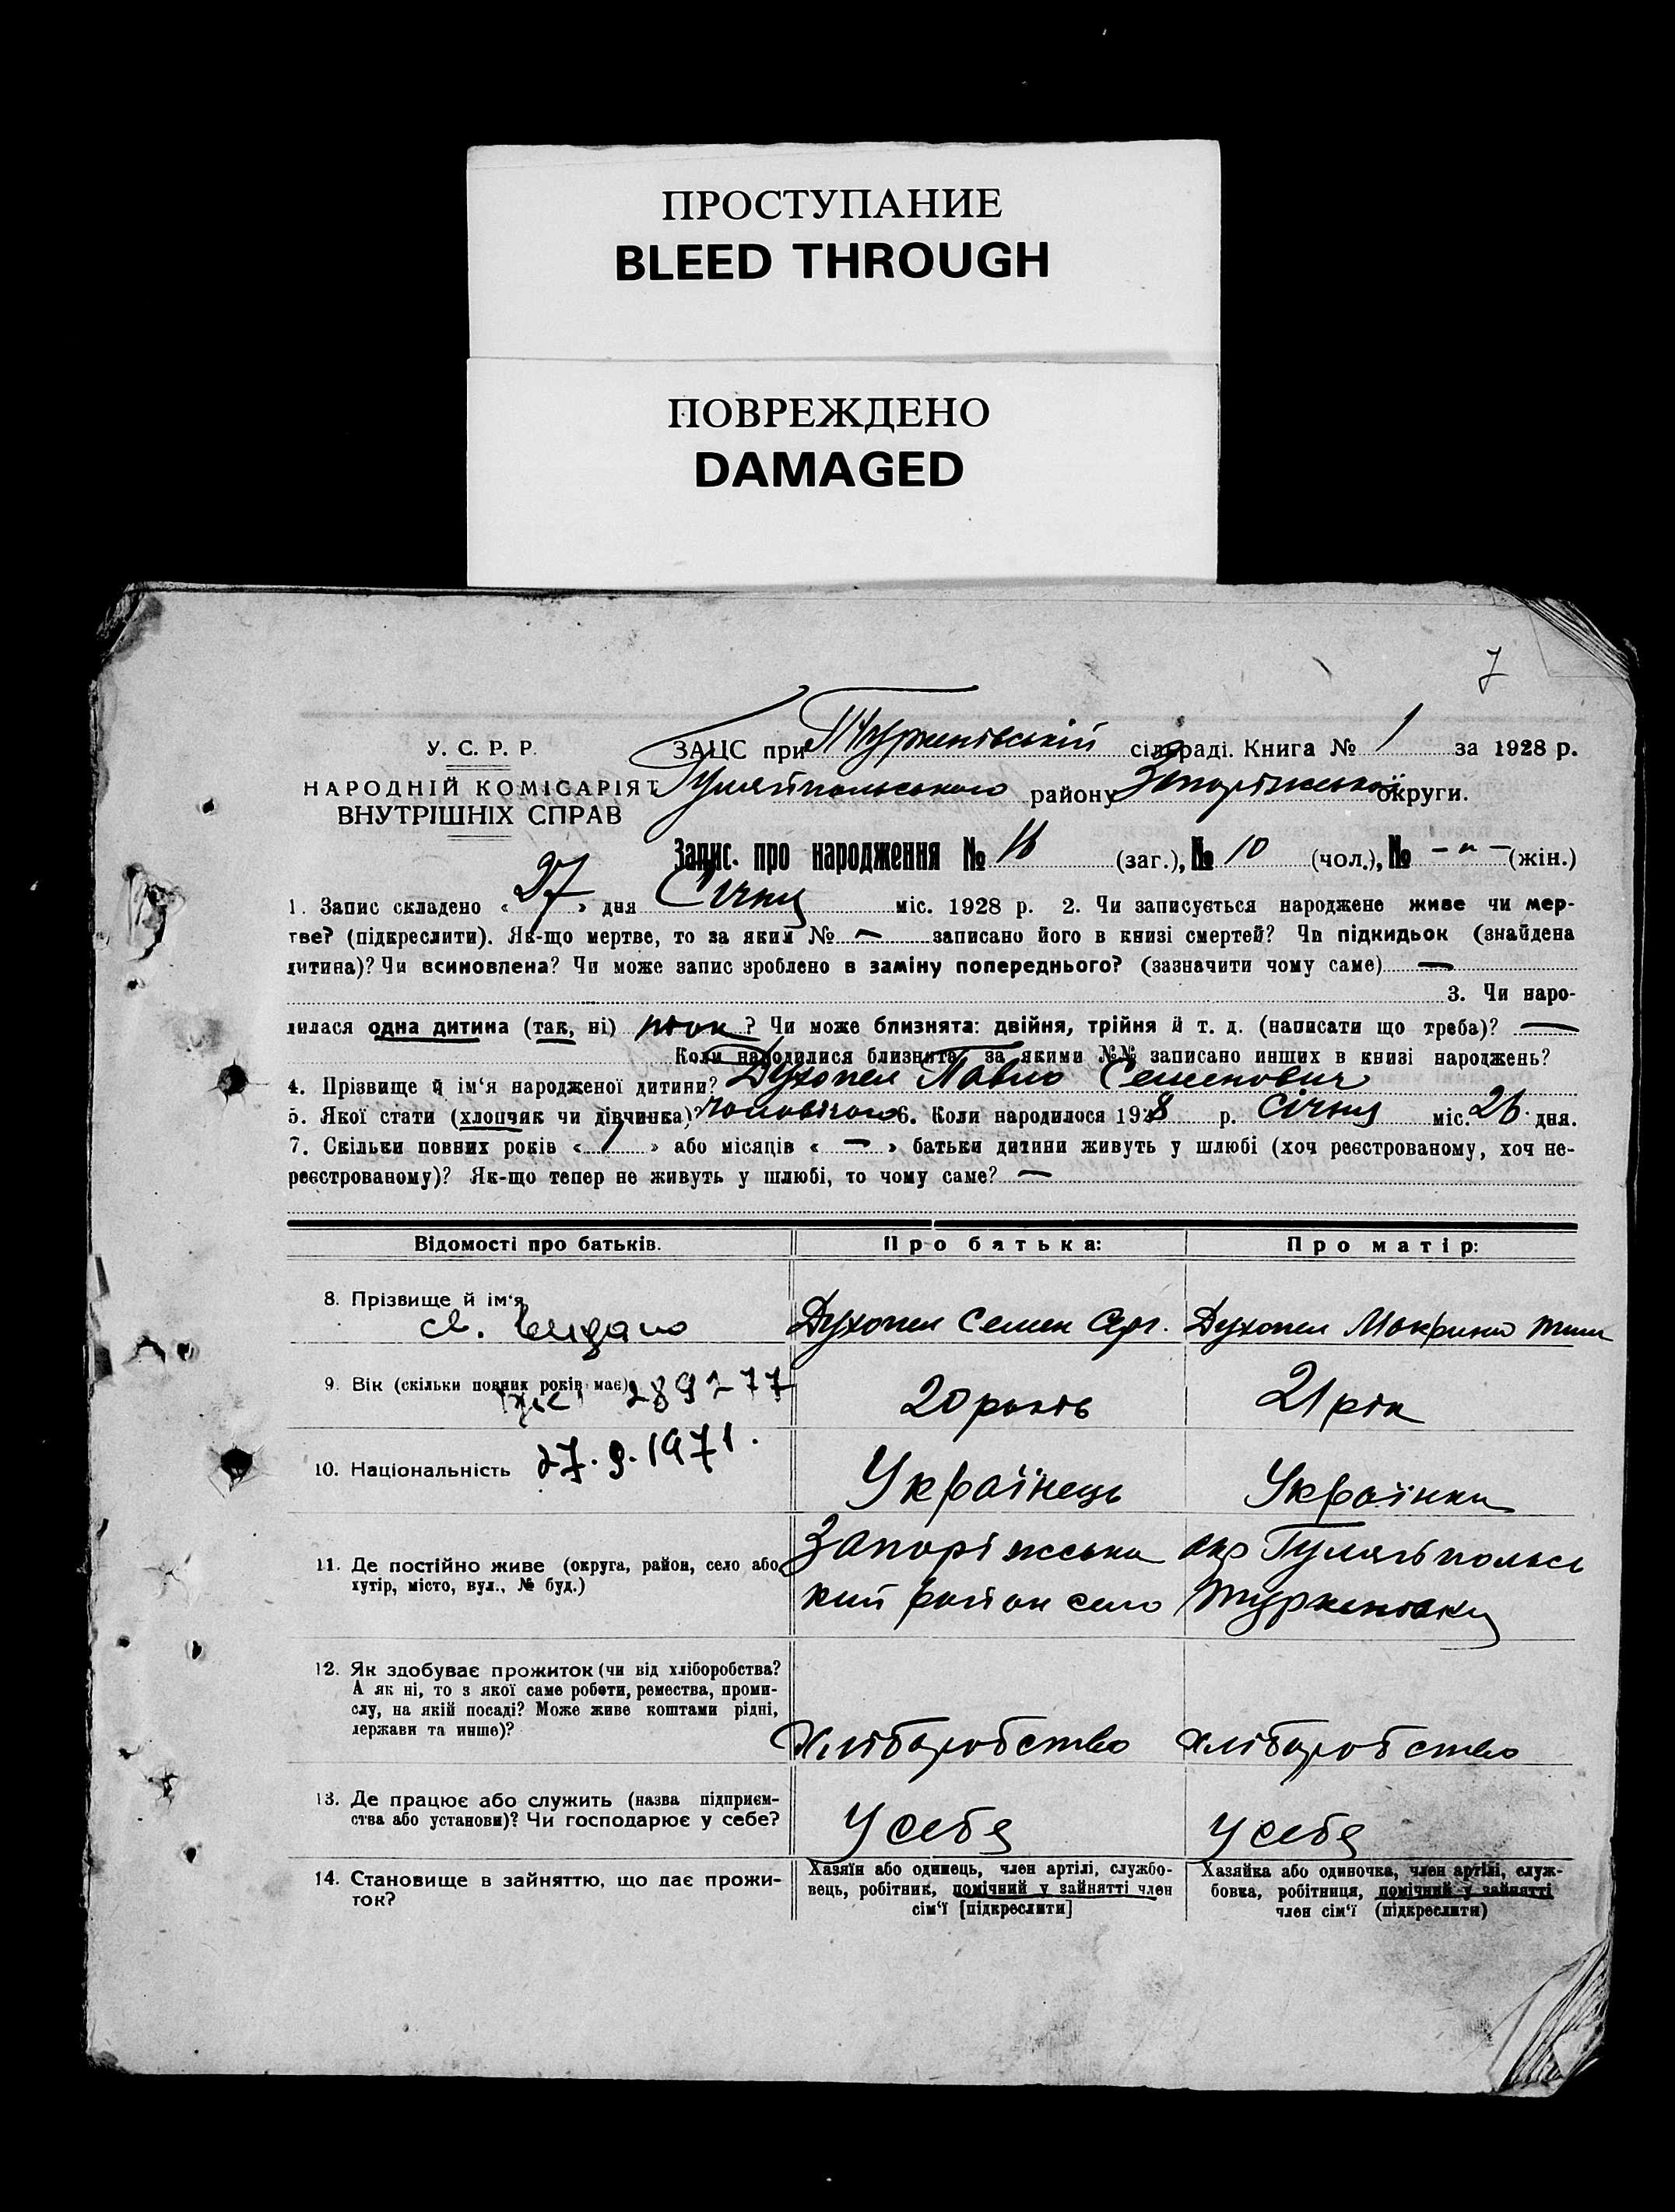 ПРОСТУПАНИЕ
BLEED THROUGH
ПОВРЕЖДЕНО
DAMAGED
7
У. С. Р. Р.
НАРОДНІЙ КОМІСАРІЯТ
ВНУТРІШНІХ СПРАВ
ЗАЦС при Туркенівській сільраді. Книга № 1 за 1928 р.
Гуляйпольського району Запоріжської округи.
Запис про народження № 16 (заг.), № 10 (чол.), № - " - (жін.)
1. Запис складено « 27 » дня Січня міс. 1928 р. 2. Чи записується народжене живе чи мер-
тве? (підкреслити). Як-що мертве, то за яким № — записано його в книзі смертей? Чи підкидьок (знайдена
дитина)? Чи всиновлена? Чи може запис зроблено в заміну попереднього? (зазначити чому саме) —
3. Чи наро-
дилася одна дитина (так, ні) так ? Чи може близнята: двійня, трійня й т. д. (написати що треба)? —
Коли народилися близнята, за якими №№ записано инших в книзі народжень?
4. Прізвище й ім‘я народженої дитини? Духопел Павло Семенович
5. Якої стати (хлопчяк чи дівчинка)? чоловічого 6. Коли народилося 1928 р. Січня міс. 26 дня.
7. Скільки повних років « 1 » або місяців « — » батьки дитини живуть у шлюбі (хоч реєстрованому, хоч не-
реєстрованому)? Як-що тепер не живуть у шлюбі, то чому саме? —
Відомості про батьків. Про батька: Про матір:
8. Прізвище й ім‘я Духопел Семен Сер. Духопел Мокрина Тим
9. Вік (скільки повних років має) 289277 20 років 21 рік
10. Національність 27.9.1971. Українець Українка
11. Де постійно живе (округа, район, село або Запоріжська окр Гуляйпольсь
хутір, місто, вул., № буд.) кий район село Туркеновка
12. Як здобуває прожиток (чи від хліборобства?
А як ні, то з якої саме роботи, ремества, проми-
слу, на якій посаді? Може живе коштами рідні,
держави та инше)? Хліборобство хліборобство
13. Де працює або служить (назва підприєм-
ства або установи)? Чи господарює у себе? У себе у себе
14. Становище в зайняттю, що дає прожи-
ток?
Хазяїн або одинець, член артілі, службо-
вець, робітник, помічний у зайнятті член
сім‘ї [підкреслити]
Хазяйка або одиночка, член артілі, служ-
бовка, робітниця, помічний у зайнятті
член сім‘ї (підкреслити)